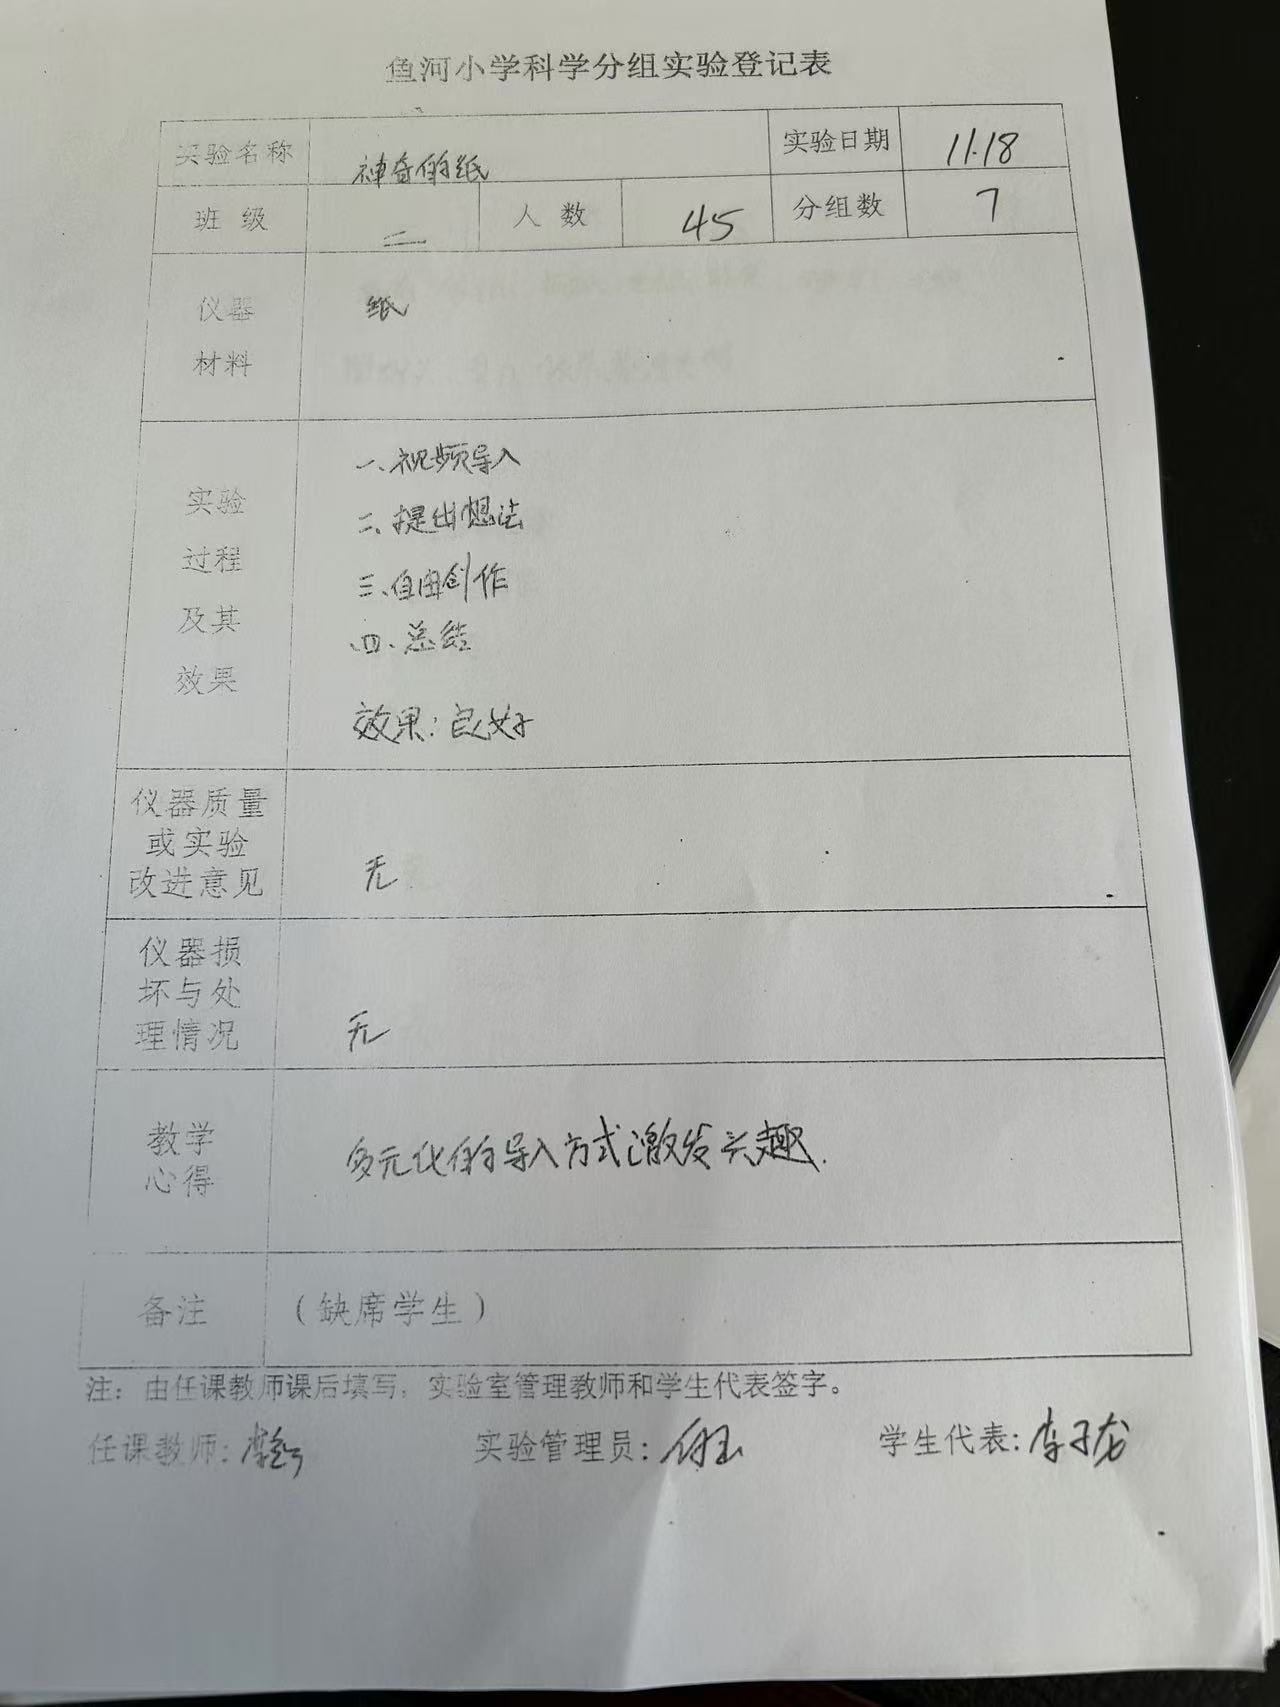 鱼河小学科学分组实验登记表
实验名称 神奇的纸 实验日期 11.18
班级 二 人数 45 分组数 7
仪器
材料
纸
实验
过程
及其
效果
一、视频导入
二、提出想法
三、自由创作
四、总结
效果：良好
仪器质量
或实验
改进意见
无
仪器损
坏与处
理情况
无
教学
心得
多元化的导入方式激发兴趣.
备注 （缺席学生）
注：由任课教师课后填写，实验室管理教师和学生代表签字。
任课教师： 实验管理员： 学生代表：李子龙